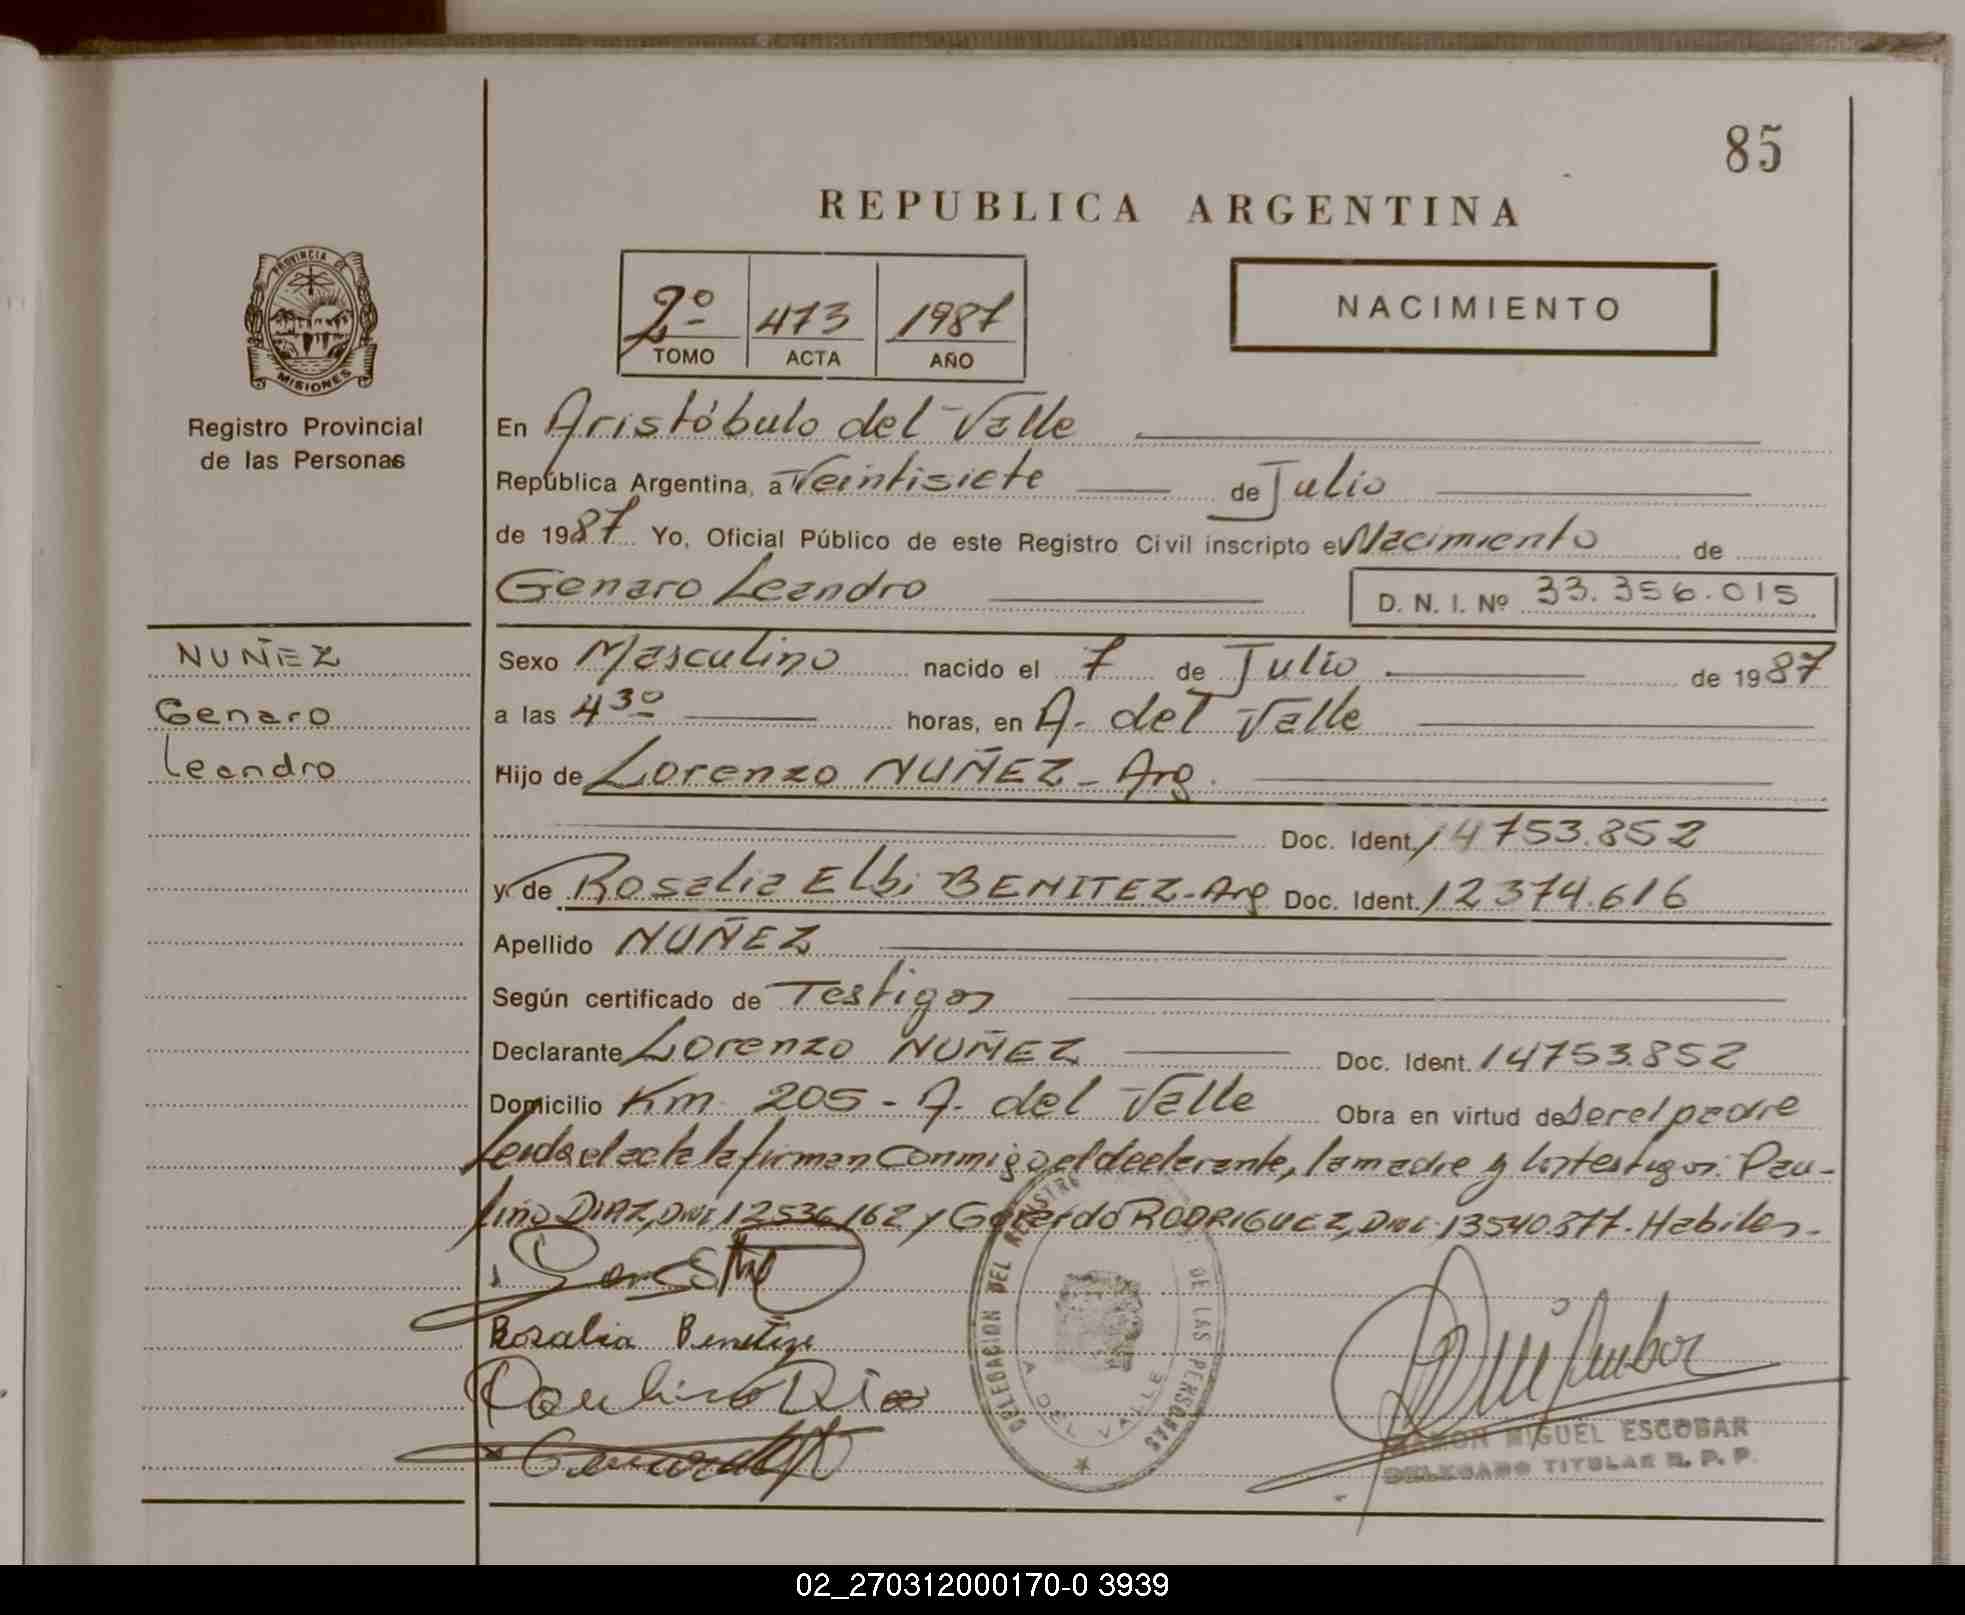 85
REPUBLICA ARGENTINA
PROVINCIA DE
MISIONES
Registro Provincial
de las Personas
2º 473 1987
TOMO ACTA AÑO
NACIMIENTO
En Aristóbulo del Valle
República Argentina, a Veintisiete de Julio
de 1987 Yo, Oficial Público de este Registro Civil inscripto el Nacimiento de
Genaro Leandro D. N. I. Nº 33.356.015
NUÑEZ
Genaro
Leandro
Sexo Masculino nacido el 7 de Julio de 1987
a las 4 30 horas, en A. del Valle
Hijo de Lorenzo NUÑEZ - Arg.
Doc. Ident. 14753.852
y de Rosalia Elbi BENITEZ - Arg Doc. Ident. 12374.616
Apellido NUÑEZ
Según certificado de Testigos
Declarante Lorenzo NUÑEZ Doc. Ident. 14753.852
Domicilio Km 205 - A. del Valle Obra en virtud de ser el padre
Leida el acta la firman conmigo, el declarante, la madre y los testigos: Pau-
lino DIAZ, DNI 12536162 y Gerardo RODRIGUEZ, DNI. 13540.877. Habiles.-
Rosalia Benitez
Paulino Dias
DELEGACION DEL REGISTRO DE LAS PERSONAS
A DEL VALLE
RAMON MIGUEL ESCOBAR
DELEGADO TITULAR R. P. P.
02_270312000170-0 3939